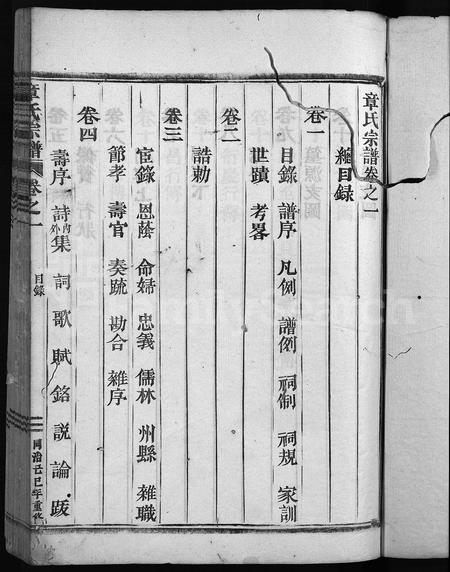 章氏宗譜卷之一
總目録
卷一
目錄 譜序 凡例 譜例 祠制 祠規 家訓
世蹟 考畧
卷二
誥勅
卷三
宦錄 恩蔭 命婦 忠義 儒林 州縣 雜職
節孝 壽官 奏疏 勘合 雜序
卷四
壽序 詩內外集 詞歌賦銘説論跋
章氏宗譜 卷之一 目錄 同治己巳年重修
FamilySearch